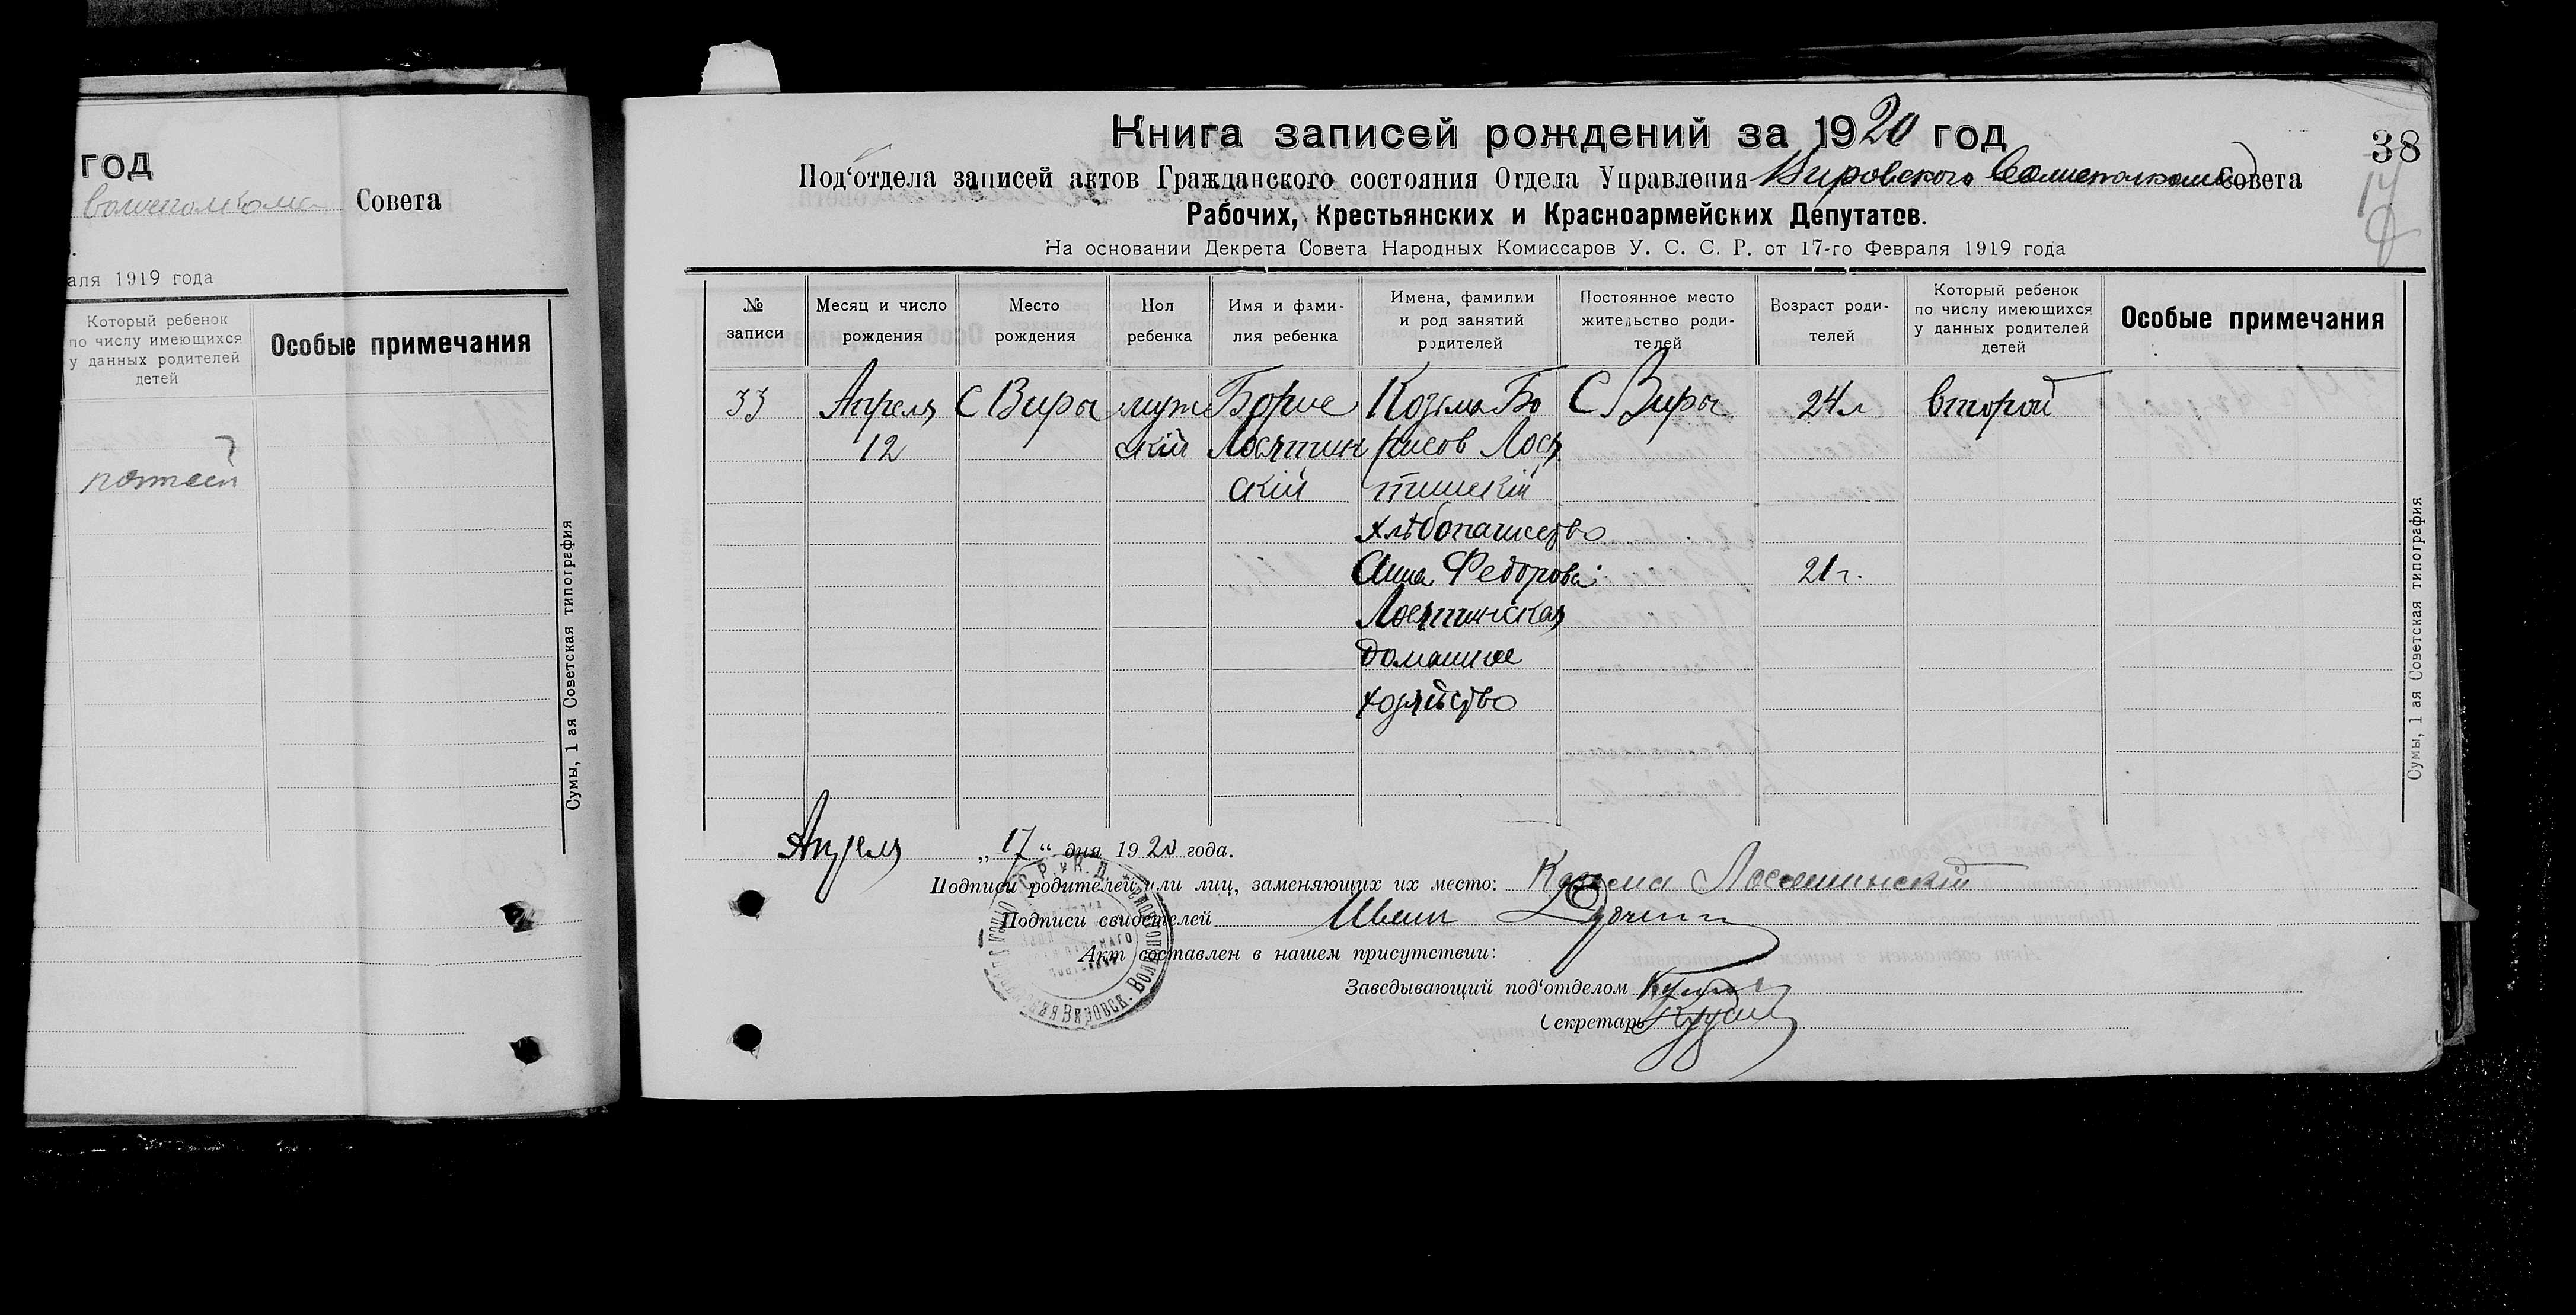 год
Волисполкома Совета
аля 1919 года
Который ребенок
по числу имеющихся
у данных родителей
детей
Особые примечания
пятый
Сумы, 1 ая Советская типография
Книга записей рождений за 1920 год
38
Под‘отдела записей актов Гражданского состояния Отдела Управления Вировского Волисполкома Совета
14
Рабочих, Крестьянских и Красноармейских Депутатов.
На основании Декрета Совета Народных Комиссаров У. С. С. Р. от 17-го Февраля 1919 года
№
записи
Месяц и число
рождения
Место
рождения
Пол
ребенка
Имя и фами-
лия ребенка
Имена, фамилки
и род занятий
родителей
Постоянное место
жительство роди-
телей
Возраст роди-
телей
Который ребенок
по числу имеющихся
у данных родителей
детей
Особые примечания
33
Апреля
12
С Виры
муж
скій
Борис
Лосятин
скій
Козьма Бо
рисов Лося
тинскій
хлѣбопашество
Анна Федорова
Лосятинская
домашнее
хозяйство
С Виры
24 л
21 г.
второй
Сумы, 1 ая Советская типография
Апреля „17“ дня 1920 года.
Подписи родителей или лиц, заменяющих их место: Козьма Лосятинскій
Подписи свидетелей Иван
Акт составлен в нашем присутствии:
Заведывающий под‘отделом
Секретарь